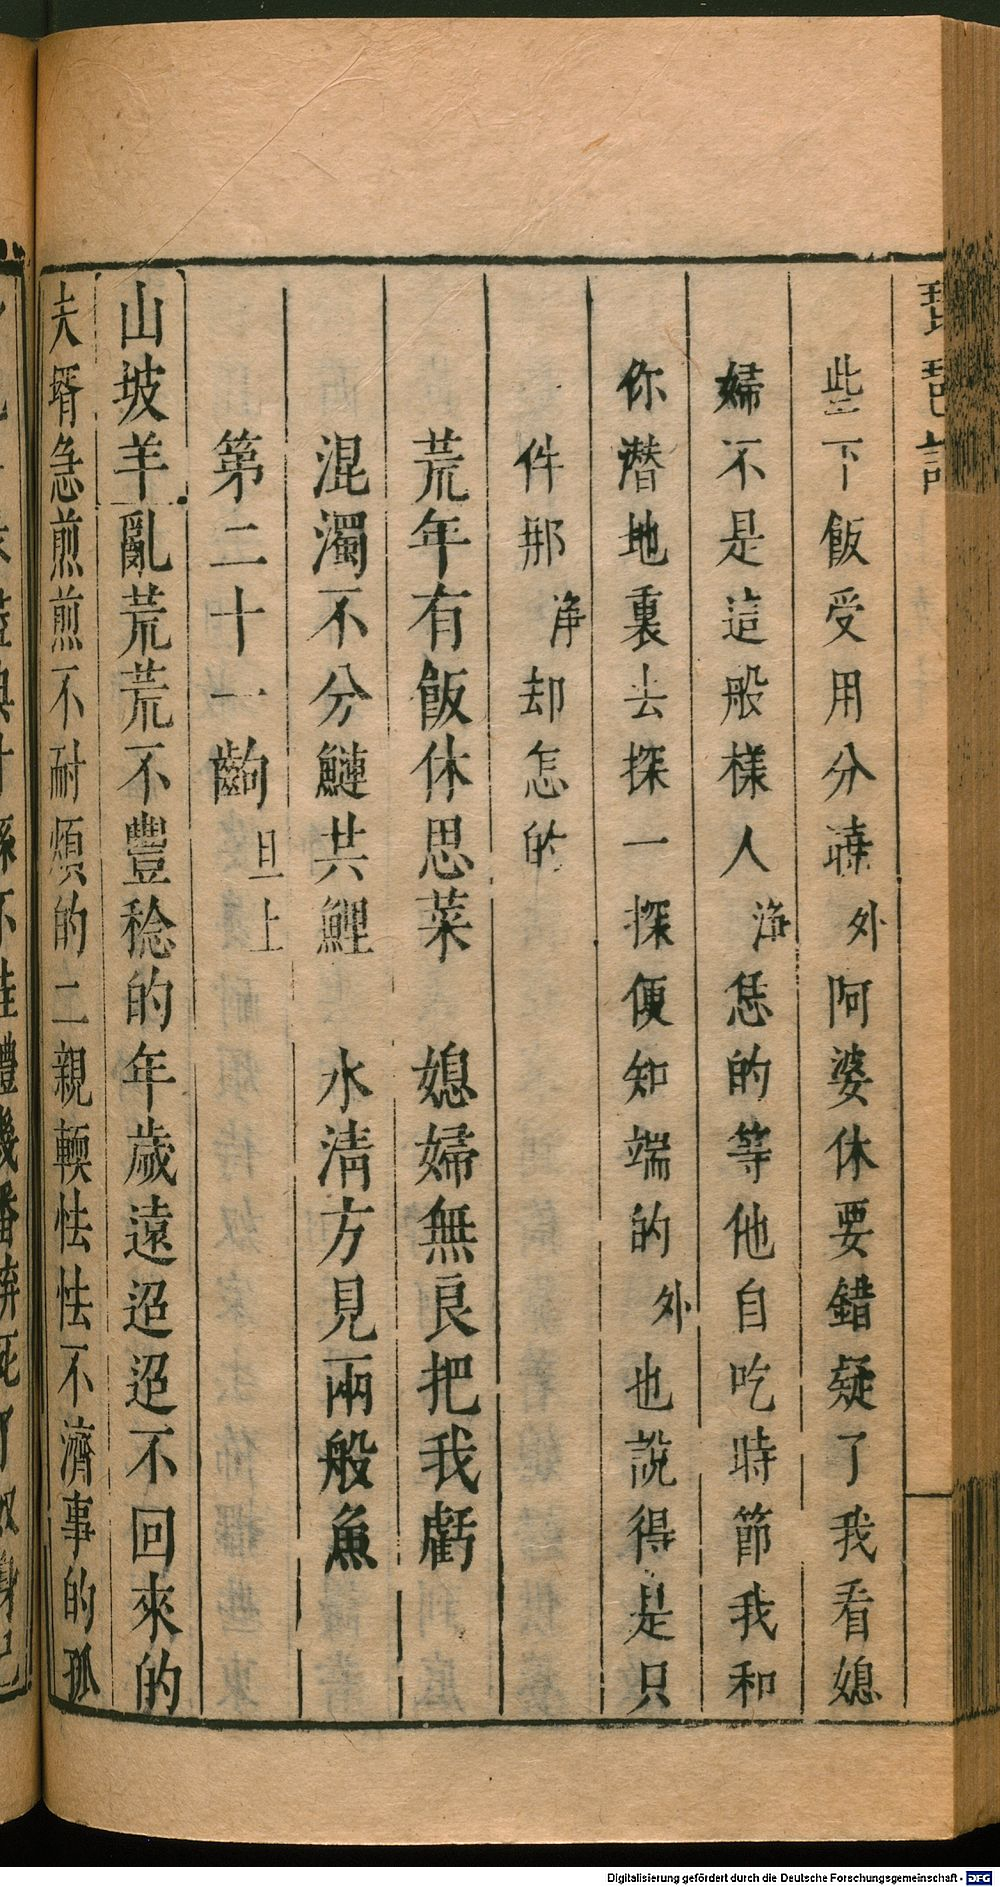 琵琶記
些下飯受用分曉外阿婆休要錯疑了我看媳
婦不是這般樣人淨恁的等他自吃時節我和
你潛地裏去探一探便知端的外也說得是只
件那淨却怎的
荒年有飯休思菜　媳婦無良把我虧
混濁不分鰱共鯉　水清方見兩般魚
第二十一齣旦上
山坡羊亂荒荒不豐稔的年歲遠迢迢不回來的
夫壻急煎煎不耐煩的二親輭怯怯不濟事的孤
Digitalisierung gefördert durch die Deutsche Forschungsgemeinschaft - DFG